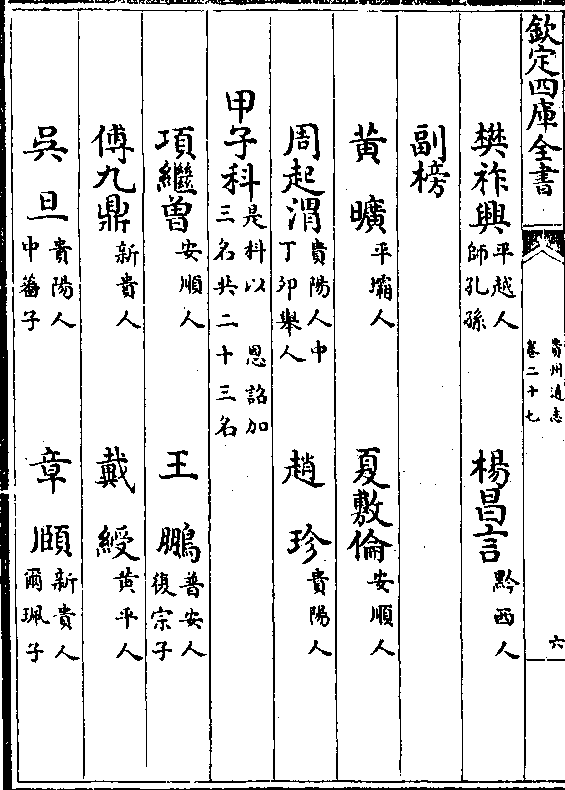 欽定四庫全書
貴州通志
卷二十七
六
樊祚興 平越人師孔孫 楊昌言 黔西人
副榜
黃曠 平壩人 夏敷倫 安順人
周起渭 貴陽人中丁卯舉人 趙珍 貴陽人
甲子科 是科以恩詔加三名共二十三名
項繼曾 安順人 王鵬 普安人復宗子
傅九鼎 新貴人 戴綬 黃平人
吳旦 貴陽人中蕃子 章頤 新貴人爾珮子